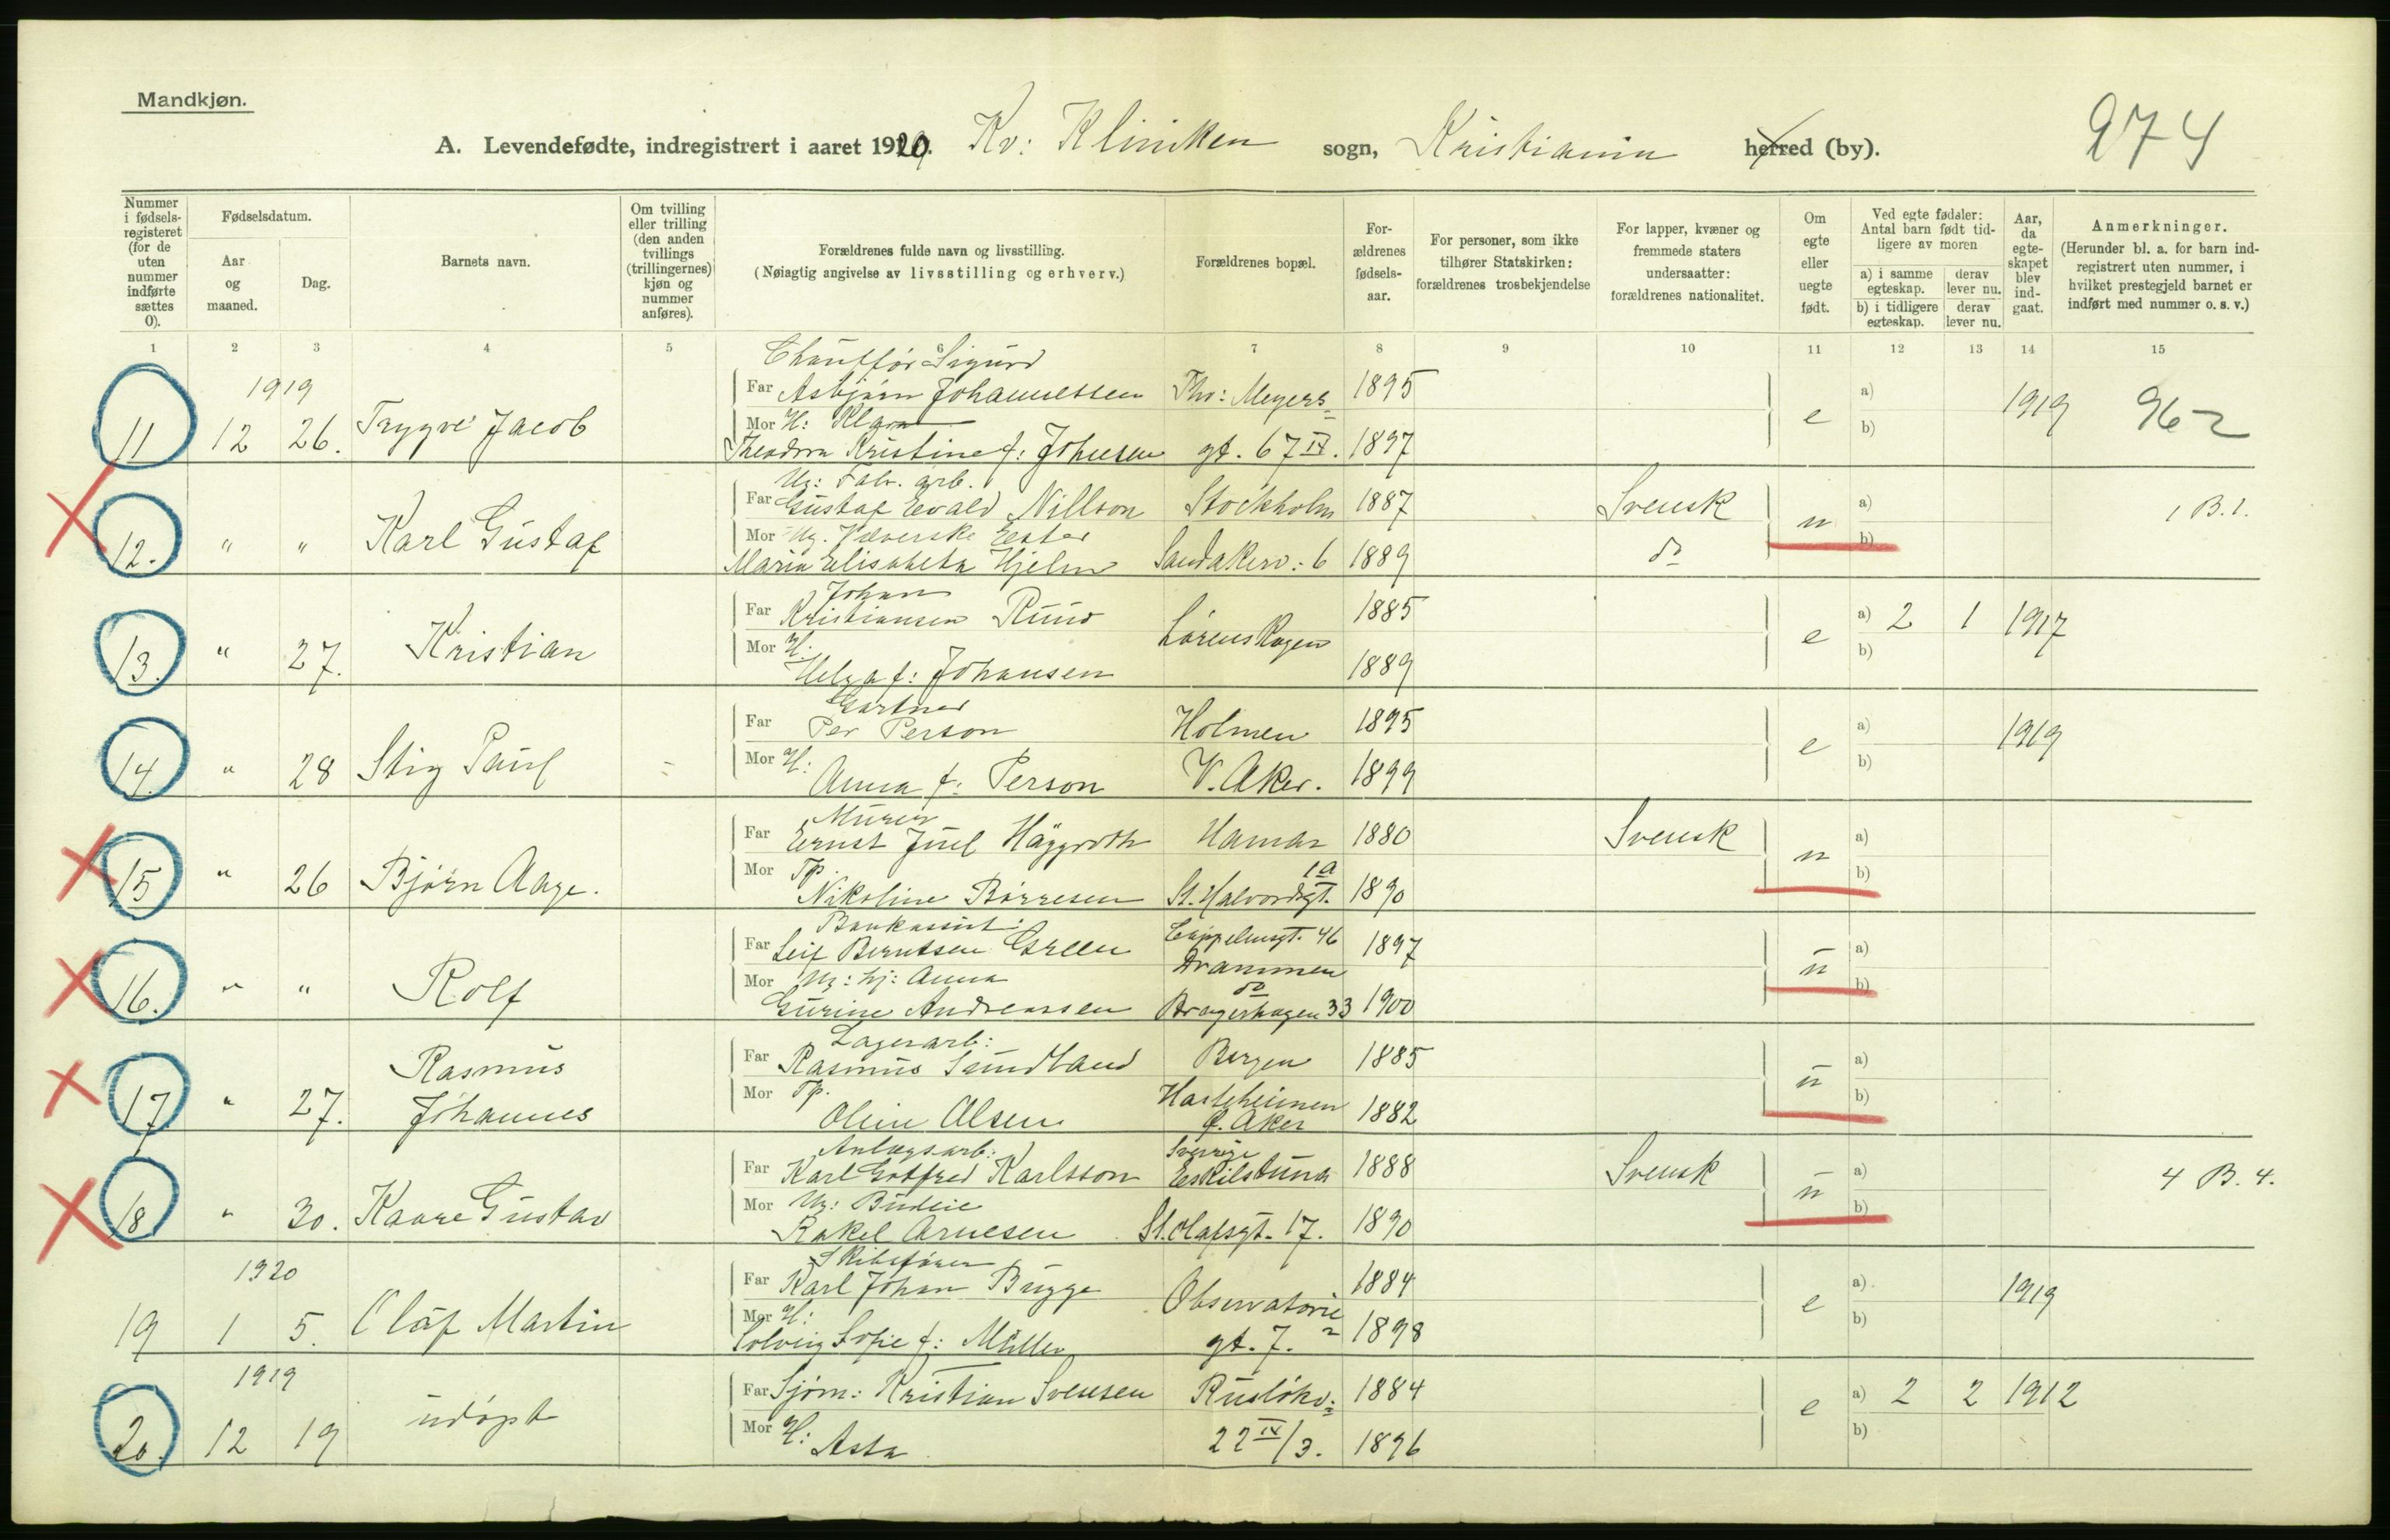 Mandkjøn.
A. Levendefødte, indregistrert i aaret 1920. Kv: Kliniken sogn, Kristiania herred (by). 274
Nummer i fødselsregisteret (for de uten nummer indførte sættes 0).
Fødselsdatum.
Aar og maaned.
Dag.
Barnets navn.
Om tvilling eller trilling (den anden tvillings (trillingernes) kjøn og nummer anføres).
Forældrenes fulde navn og livsstilling.
(Nøiagtig angivelse av livsstilling og erhverv.)
Forældrenes bopæl.
Forældrenes fødselsaar.
For personer, som ikke tilhører Statskirken: forældrenes trosbekjendelse
For lapper, kvæner og fremmede staters undersaatter: forældrenes nationalitet.
Om egte eller uegte født.
Ved egte fødsler: Antal barn født tidligere av moren
a) i samme egteskap. derav lever nu.
b) i tidligere egteskap. derav lever nu.
Aar, da egteskapet blev indgaat.
Anmerkninger.
(Herunder bl. a. for barn indregistrert uten nummer, i hvilket prestegjeld barnet er indført med nummer o. s. v.)
1 2 3 4 5 6 7 8 9 10 11 12 13 14 15
Chauffør Sigurd
1919 Far Asbjørn Johannessen Thv: Meyers 1895 a) 1919 962
11 12 26. Trygve Jacob Mor H: Klara e b)
Theodora Kristine f: Johnsen gt. 67 IV. 1897
Ug: Fabr. arb.
Far Gustaf Evald Nillson Stockholm 1887 Svensk a) 1 B. 1.
12. " " Karl Gustaf Mor Ug. Væverske Ester u b)
Maria Elisabeta Hjelm Sandakerv: 6 1889 do
Johan
Far Kristiansen Ruud Lørenskogen 1885 a) 2 1 1917
13. " 27. Kristian Mor H: e b)
Helga f: Johansen 1889
Gartner
Far Per Person Holmen 1895 a) 1919
14. " 28 Stig Paul Mor H: e b)
Anna f: Person V. Aker. 1899
Murer
Far Ernst Juel Häggroth Hamar 1880 Svensk a)
15 " 26 Bjørn Aage. Mor Tp. 1a u b)
Nikoline Børresen St. Halvordsgt. 1890
Bankassist:
Far Leif Berntsen Green Cappelensgt. 46 1897 a)
16. " " Rolf Mor Ug: hj: Anna Drammen u b)
Gurine Andreassen do Bragerhagen 33 1900
Lagerarb:
Far Rasmus Sundland Bergen 1885 a)
17 " 27. Rasmus Johannes Mor Tp. u b)
Oline Olsen Ø. Aker 1882
Anlægsarb: Sverige
Far Karl Gotfred Karlsson Eskilstuna 1888 Svensk a) 4 B. 4.
18 " 30. Kaare Gustav Mor Ug: Budeie u b)
Rakel Arnesen St. Olafsgt. 17. 1890
Skibsfører
1920 Far Karl Johan Bugge Observatorie 1884 a) 1919
19 1 5. Olaf Martin Mor H: e b)
Solveig Sofie f: Müller gt. 7. 1898
1919 Far Sjøm: Kristian Svensen Rusløkv: 1884 a) 2 2 1912
20. 12 19 udøpt Mor H: Asta 22 IV/3. 1896 e b)